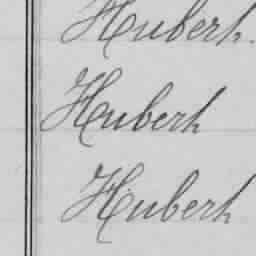 Hubert.
Hubert
Hubert